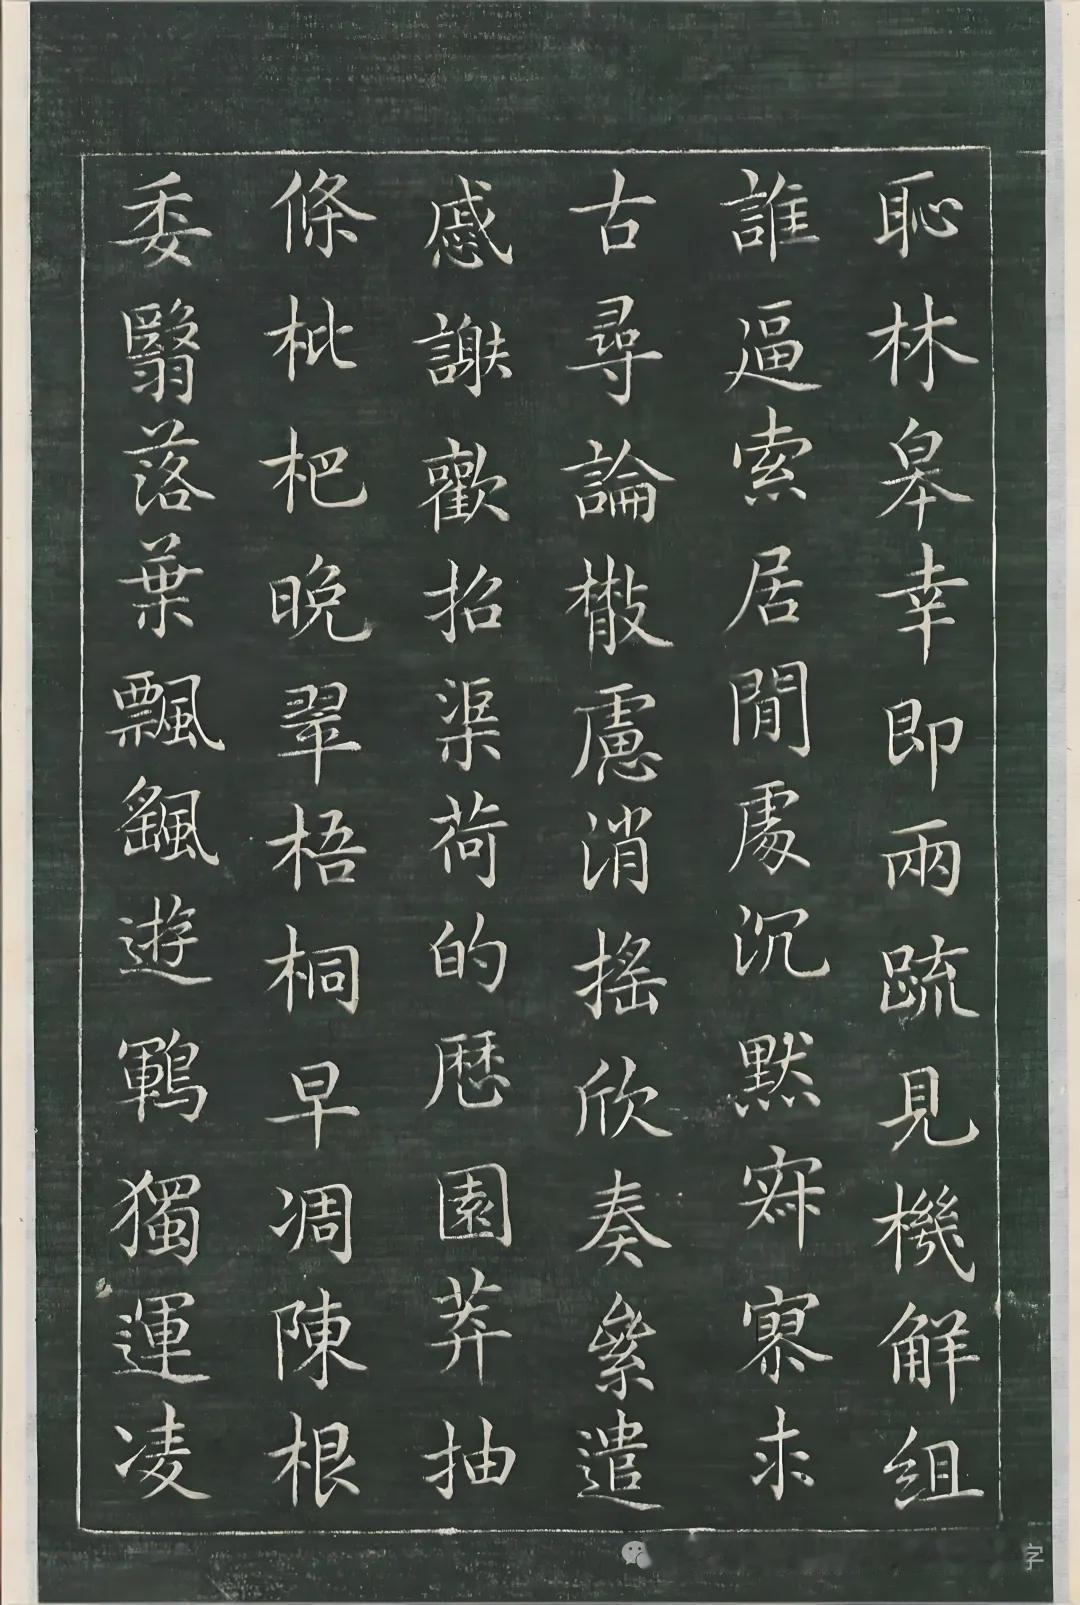 恥林皋幸即兩疏見機解組
誰逼索居閒處沉默寂寥求
古尋論散慮消搖欣奏累遣
慼謝歡招渠荷的歷園莽抽
條枇杷晚翠梧桐早凋陳根
委翳落葉飄颻遊鶤獨運凌
字